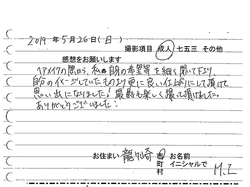 2019年 5月26日(日)
撮影項目 成人 七五三 その他
感想をお願いします
ヘアメイクの際から、私の希望等を細く聞いて下さり
自分のイメージしていたものより更に良い仕上がりにして頂けて
思い出になりました! 撮影も楽しく撮って頂けました。
ありがとうございました!
お住まい 龍ヶ崎 市町村 お名前 イニシャルで M.I